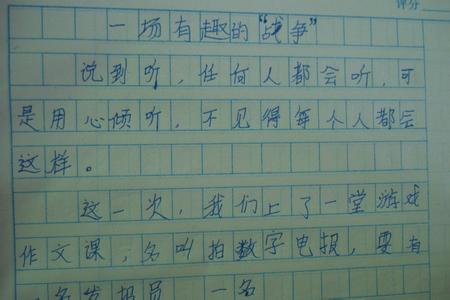 评分
一场有趣的“战争”
说到听，任何人都会听，可
是用心倾听，不见得每个人都会
这样。
这一次，我们上了一堂游戏
作文课，名叫拍数字电报，要有
一名发报员，一名